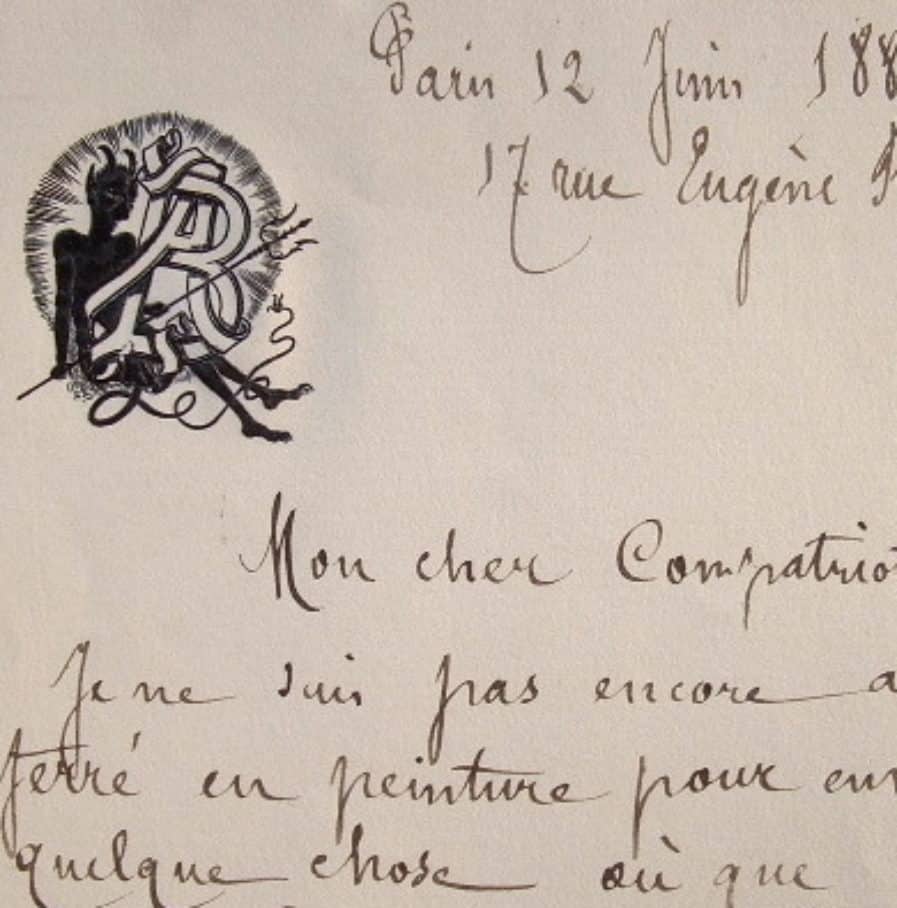 Paris 12 Juin 188
17 rue Eugène
Mon cher Compatrio
Je ne suis pas encore a
ferré en peinture pour
quelque chose où que